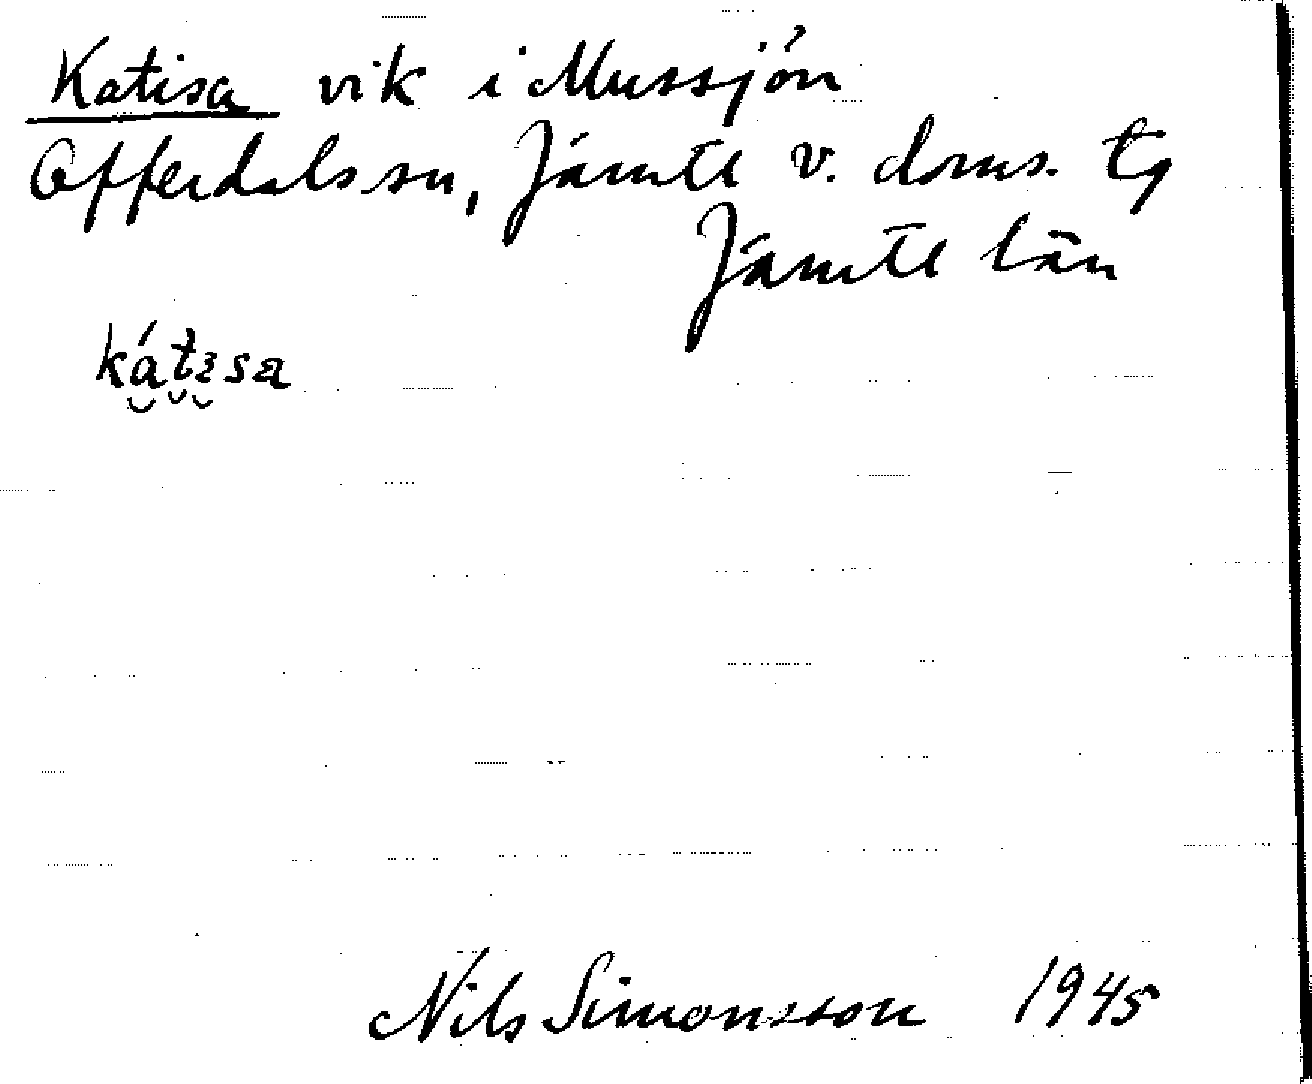 Katisa vik i Mussjön
Offerdals sn, Jämtl v. doms. tg
Jämtl län
kátisa
Nils Simonsson 1945